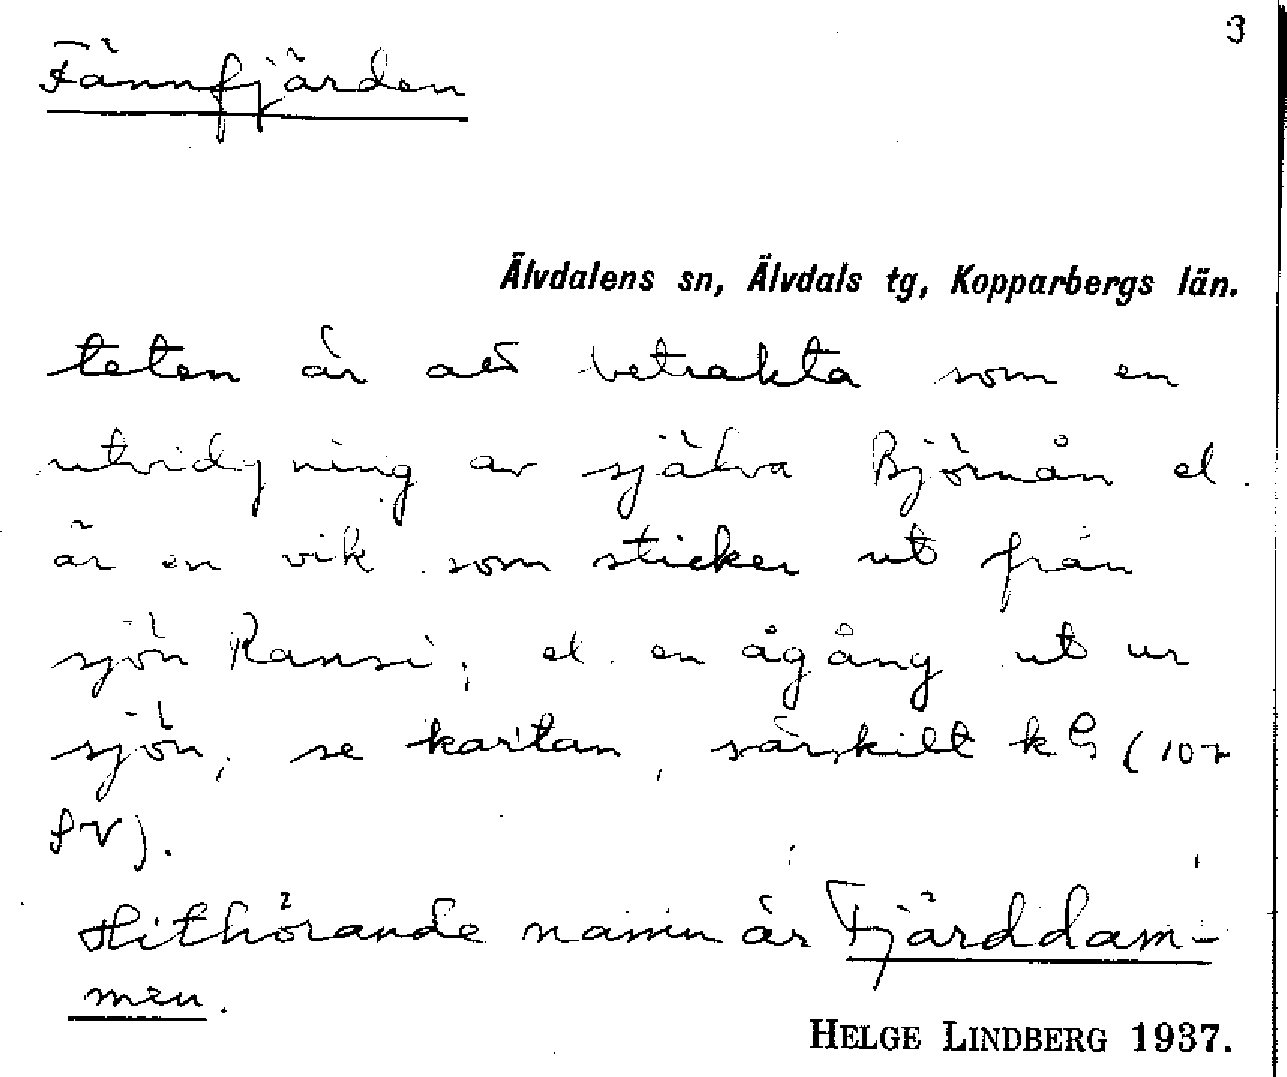 3
Fännfjärden
Älvdalens sn, Älvdals tg, Kopparbergs län.
teten är att betrakta som en
utvidgning av själva Björnån el.
är en vik som sticker ut från
sjön Ransi, el. en ågång ut ur
sjön, se kartan, särskilt k G (107
SV).
Hithörande namn är Fjärddam-
men.
HELGE LINDBERG 1937.